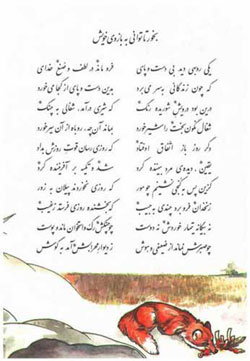 بخور تا توانی به بازوی خویش
یکی روبهی دید بی دست و پای
فرو ماند در لطف و صنع خدای
که چون زندگانی به سر می‌برد
بدین دست و پای از کجا می‌خورد
درین بود درویش شوریده رنگ
که شیری درآمد، شغالی به چنگ
شغال نگون بخت را شیر خورد
بماند آنچه، روباه از آن سیر خورد
دگر روز باز اتفاق اوفتاد
که روزی رسان قوت روزش بداد
یقین، دیده‌ی مرد بیننده کرد
شد و تکیه بر آفریننده کرد
کزین پس به کنجی نشینم چو مور
که روزی نخوردند پیلان به زور
زنخدان فرو برد چندی به جیب
که بخشنده روزی فرستد ز غیب
نه بیگانه تیمار خوردش نه دوست
چو چنگش رگ و استخوان ماند و پوست
چو صبرش نماند از ضعیفی و هوش
ز دیوار محرابش آمد به گوش